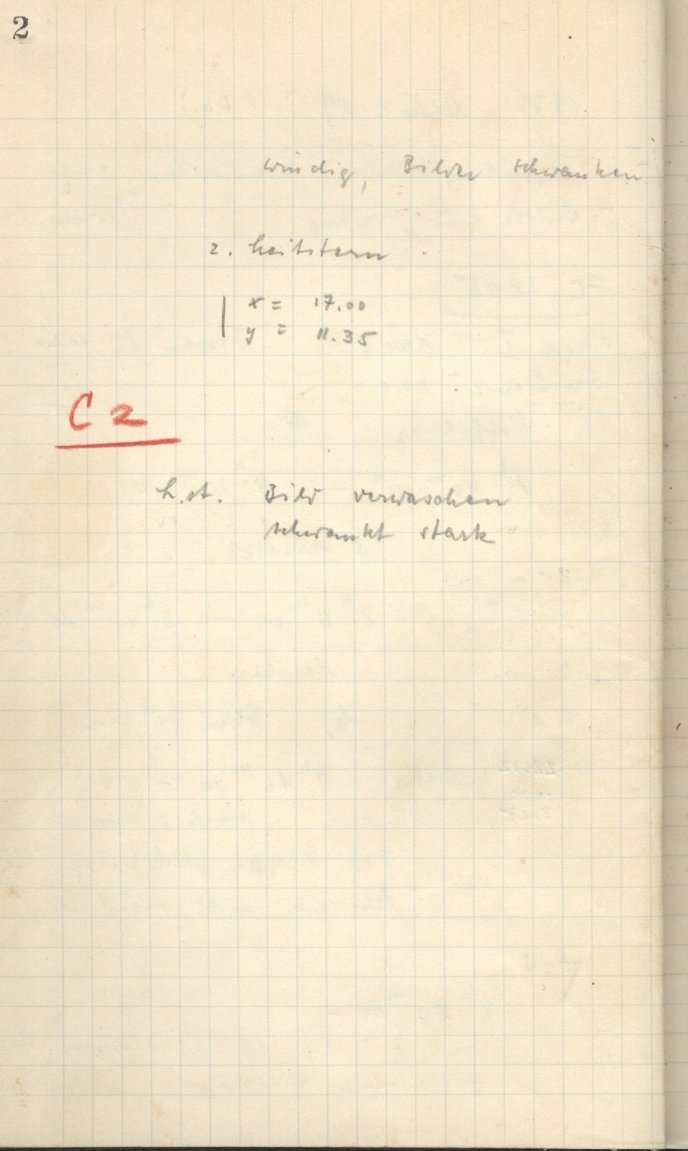 2
windig, Bilder schwanken
2. Leitstern
x = 17.00
y = 11.35
C 2
L.st. Bild verwaschen
schwankt stark